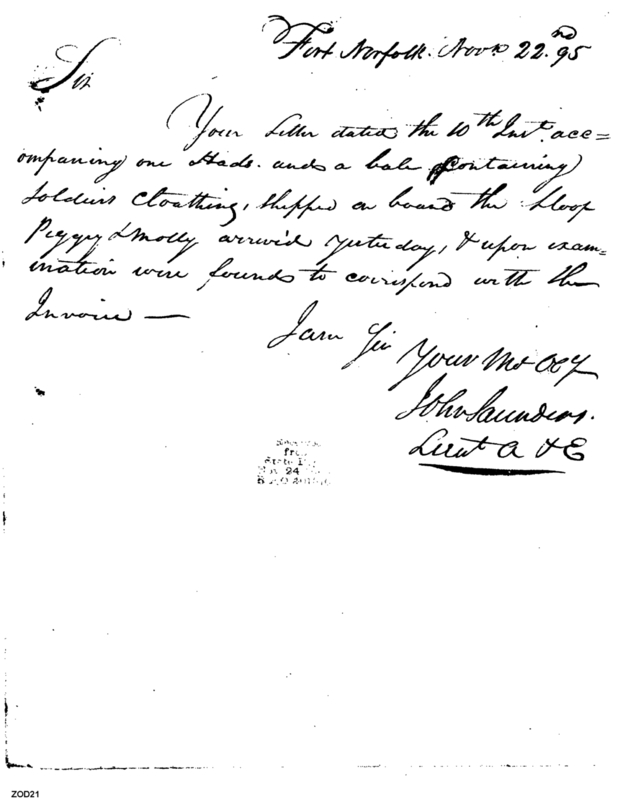 Fort Norfolk. Novr. 22.nd 95
Sir
Your Letter dated the 10th Inst. acc=
ompaning one Hhds. and a bale Containing
Soldiers Cloathing, shipped on board the Sloop
Peggy & Molly arrived yesterday, & upon exam=
ination were found to corrispond with the
Invoice —
I am Sir
Your Mo Obt
John Saunders.
Lieut A & E
Received
from
State
24
ZOD21